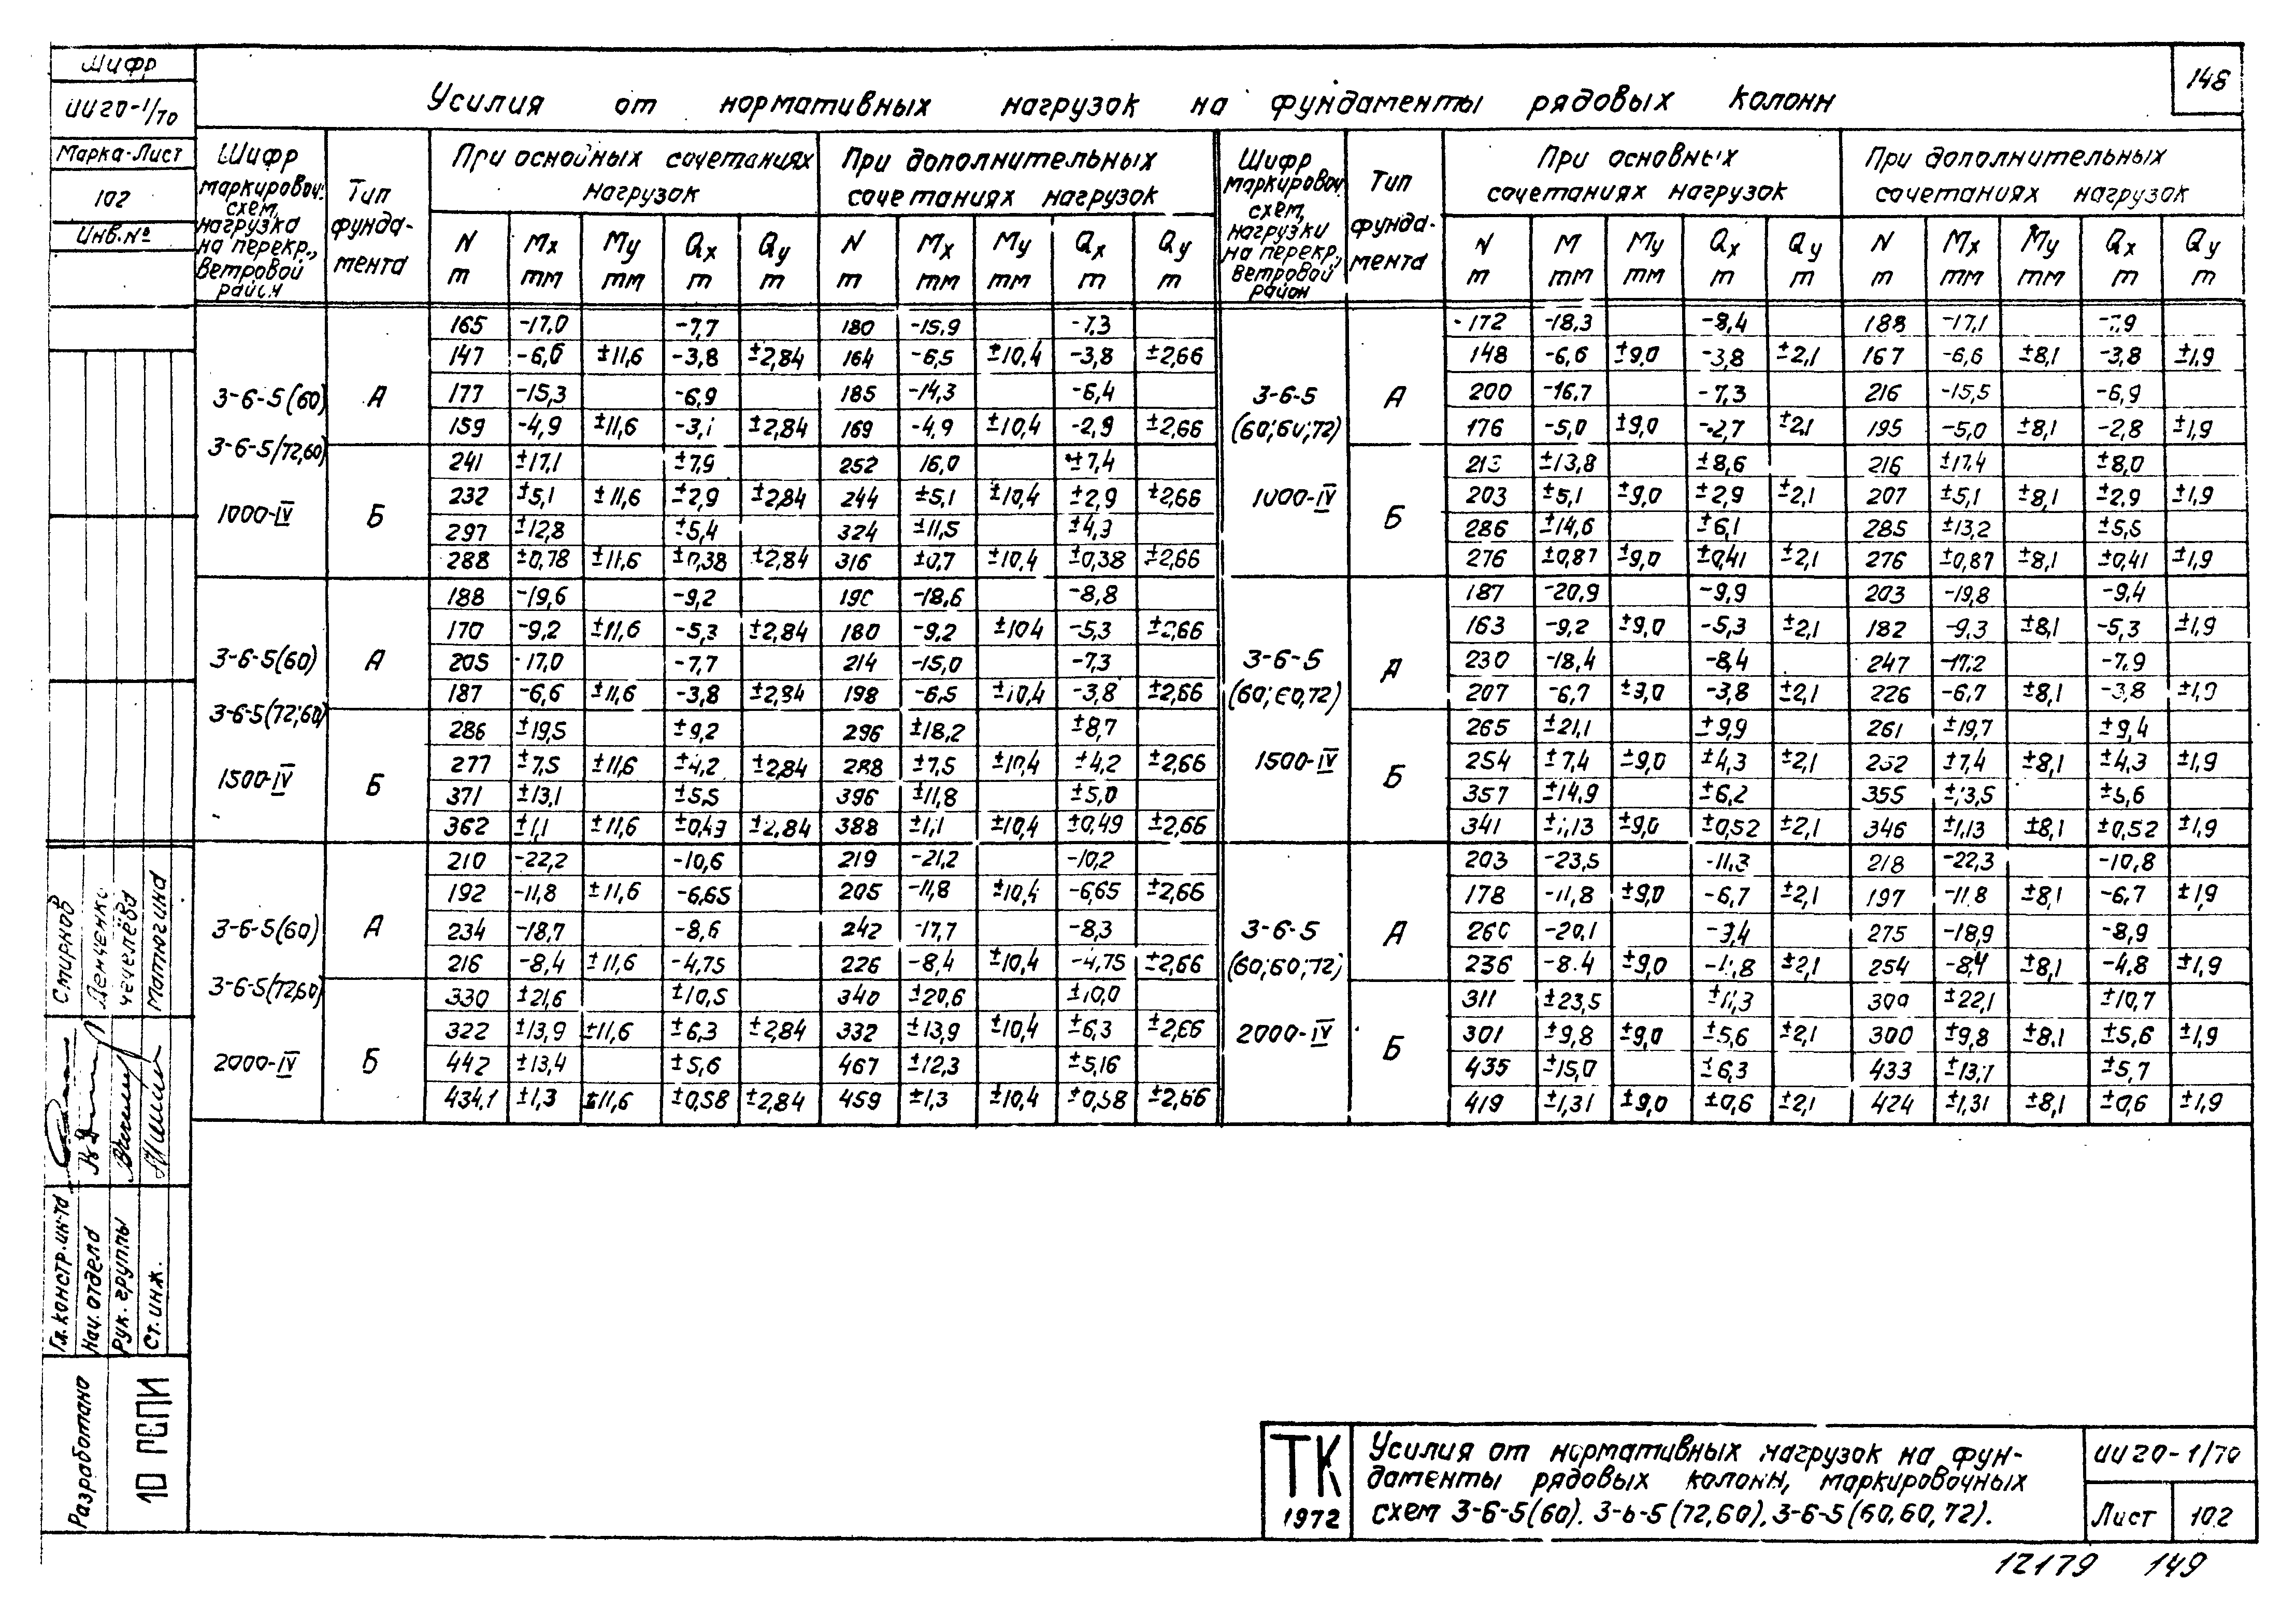 Шифр
ИИ20-1/70
Марка-Лист
102
Инв.№
148
Усилия от нормативных нагрузок на фундаменты рядовых колонн
Шифр маркировоч. схем, нагрузка на перекр., ветровой район
Тип фунда-мента
При основных сочетаниях нагрузок
При дополнительных сочетаниях нагрузок
N т Mx тм My тм Qx т Qy т N т Mx тм My тм Qx т Qy т
3-6-5(60)
3-6-5(72,60)
1000-IV
А
165 -17,0 -7,7 180 -15,9 -7,3
147 -6,6 ±11,6 -3,8 ±2,84 164 -6,5 ±10,4 -3,8 ±2,66
177 -15,3 -6,9 185 -14,3 -6,4
159 -4,9 ±11,6 -3,1 ±2,84 169 -4,9 ±10,4 -2,9 ±2,66
Б
241 ±17,1 ±7,9 252 16,0 ±7,4
232 ±5,1 ±11,6 ±2,9 ±2,84 244 ±5,1 ±10,4 ±2,9 ±2,66
297 ±12,8 ±5,4 324 ±11,5 ±4,3
288 ±0,78 ±11,6 ±0,38 ±2,84 316 ±0,7 ±10,4 ±0,38 ±2,66
3-6-5(60)
3-6-5(72,60)
1500-IV
А
188 -19,6 -9,2 190 -18,6 -8,8
170 -9,2 ±11,6 -5,3 ±2,84 180 -9,2 ±10,4 -5,3 ±2,66
205 -17,0 -7,7 214 -15,0 -7,3
187 -6,6 ±11,6 -3,8 ±2,84 198 -6,5 ±10,4 -3,8 ±2,66
Б
286 ±19,5 ±9,2 296 ±18,2 ±8,7
277 ±7,5 ±11,6 ±4,2 ±2,84 288 ±7,5 ±10,4 ±4,2 ±2,66
371 ±13,1 ±5,5 396 ±11,8 ±5,0
362 ±1,1 ±11,6 ±0,49 ±2,84 388 ±1,1 ±10,4 ±0,49 ±2,66
3-6-5(60)
3-6-5(72,60)
2000-IV
А
210 -22,2 -10,6 219 -21,2 -10,2
192 -11,8 ±11,6 -6,65 205 -11,8 ±10,4 -6,65 ±2,66
234 -18,7 -8,6 242 -17,7 -8,3
216 -8,4 ±11,6 -4,75 226 -8,4 ±10,4 -4,75 ±2,66
Б
330 ±21,6 ±10,5 340 ±20,6 ±10,0
322 ±13,9 ±11,6 ±6,3 ±2,84 332 ±13,9 ±10,4 ±6,3 ±2,66
442 ±13,4 ±5,6 467 ±12,3 ±5,16
434,1 ±1,3 ±11,6 ±0,58 ±2,84 459 ±1,3 ±10,4 ±0,58 ±2,66
Шифр маркировоч схем, нагрузки на перекр., ветровой район
Тип фунда-мента
При основных сочетаниях нагрузок
При дополнительных сочетаниях нагрузок
N т M тм My тм Qx т Qy т N т Mx тм My тм Qx т Qy т
3-6-5
(60;60;72)
1000-IV
А
172 -18,3 -8,4 188 -17,1 -7,9
148 -6,6 ±9,0 -3,8 ±2,1 167 -6,6 ±8,1 -3,8 ±1,9
200 -16,7 -7,3 216 -15,5 -6,9
176 -5,0 ±9,0 -2,7 ±2,1 195 -5,0 ±8,1 -2,8 ±1,9
Б
213 ±13,8 ±8,6 216 ±17,4 ±8,0
203 ±5,1 ±9,0 ±2,9 ±2,1 207 ±5,1 ±8,1 ±2,9 ±1,9
286 ±14,6 ±6,1 285 ±13,2 ±5,5
276 ±0,87 ±9,0 ±0,41 ±2,1 276 ±0,87 ±8,1 ±0,41 ±1,9
3-6-5
(60;60,72)
1500-IV
А
187 -20,9 -9,9 203 -19,8 -9,4
163 -9,2 ±9,0 -5,3 ±2,1 182 -9,3 ±8,1 -5,3 ±1,9
230 -18,4 -8,4 247 -17,2 -7,9
207 -6,7 ±9,0 -3,8 ±2,1 226 -6,7 ±8,1 -3,8 ±1,9
Б
265 ±21,1 ±9,9 261 ±19,7 ±9,4
254 ±7,4 ±9,0 ±4,3 ±2,1 252 ±7,4 ±8,1 ±4,3 ±1,9
357 ±14,9 ±6,2 355 ±13,5 ±5,6
341 ±1,13 ±9,0 ±0,52 ±2,1 346 ±1,13 ±8,1 ±0,52 ±1,9
3-6-5
(60;60;72)
2000-IV
А
203 -23,5 -11,3 218 -22,3 -10,8
178 -11,8 ±9,0 -6,7 ±2,1 197 -11,8 ±8,1 -6,7 ±1,9
260 -20,1 -9,4 275 -18,9 -8,9
236 -8,4 ±9,0 -4,8 ±2,1 254 -8,4 ±8,1 -4,8 ±1,9
Б
311 ±23,5 ±11,3 309 ±22,1 ±10,7
301 ±9,8 ±9,0 ±5,6 ±2,1 300 ±9,8 ±8,1 ±5,6 ±1,9
435 ±15,0 ±6,3 433 ±13,7 ±5,7
419 ±1,31 ±9,0 ±0,6 ±2,1 424 ±1,31 ±8,1 ±0,6 ±1,9
Гл. констр. ин-та Смирнов
Нач. отдела Денченко
Рук. группы
Ст. инж. Матюгина
Разработано
10 ГСПИ
ТК
1972
Усилия от нормативных нагрузок на фун-
даменты рядовых колонн, маркировочных
схем 3-6-5(60). 3-6-5(72,60). 3-6-5(60,60,72).
ИИ20-1/70
Лист 102
12179 149